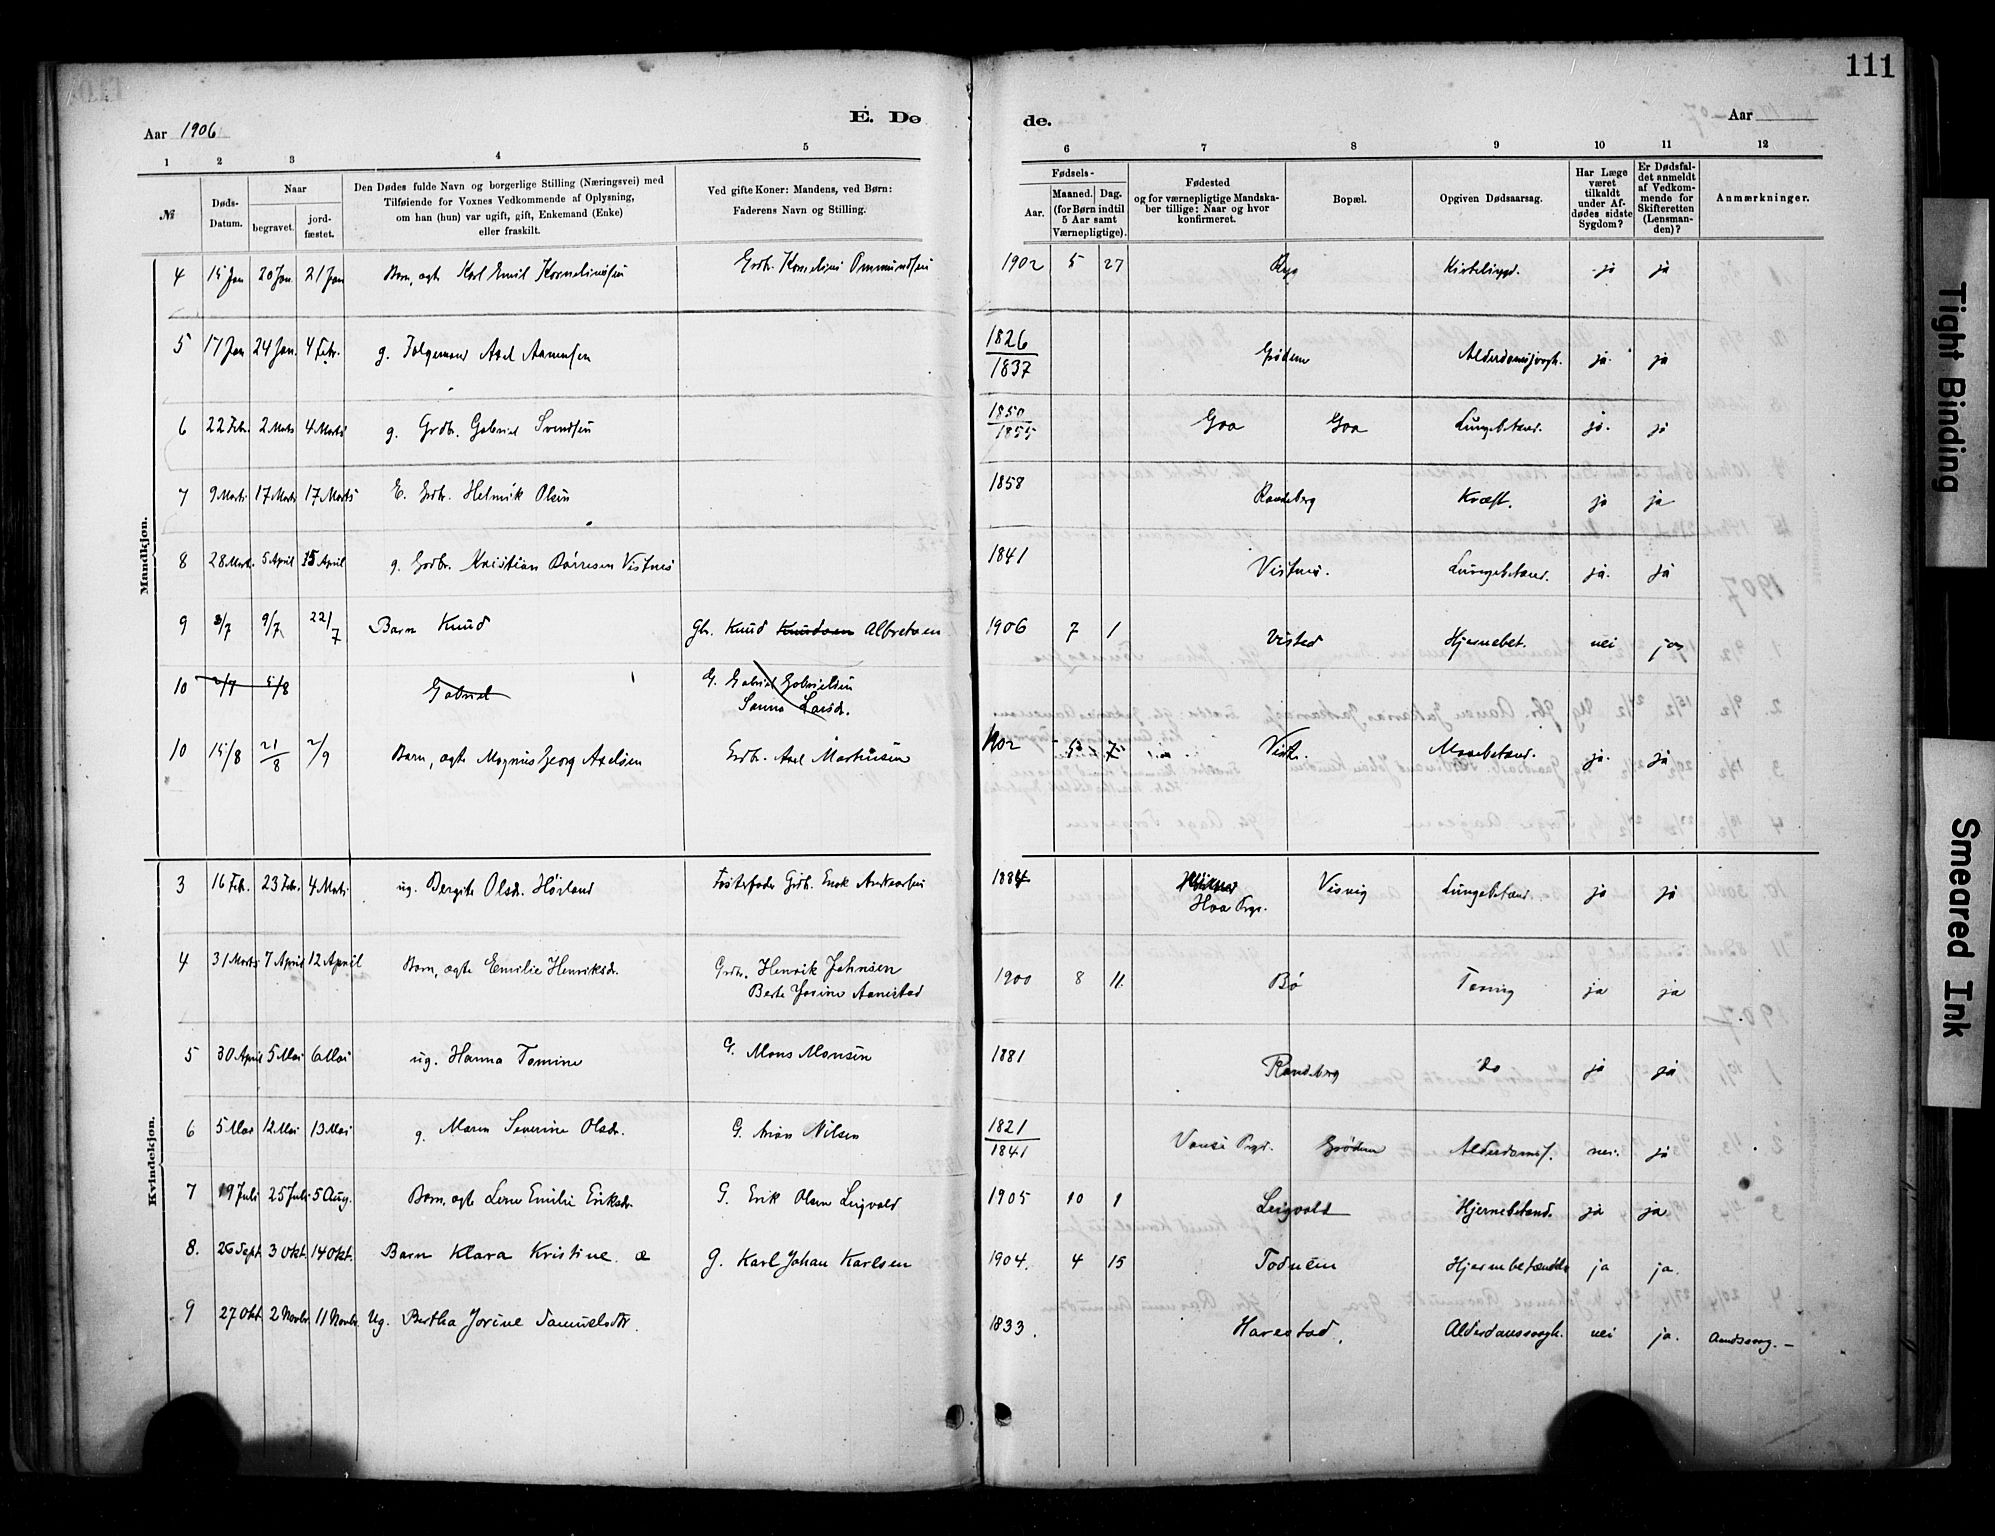 111
Aar 1906
E. Dø
de.
Aar
1 2 3 4 5 6 7 8 9 10 11 12
№
Døds-Datum.
Naar
begravet.
jord-fæstet.
Den Dødes fulde Navn og borgerlige Stilling (Næringsvei) med
Tilføiende for Voxnes Vedkommende af Oplysning,
om han (hun) var ugift, gift, Enkemand (Enke)
eller fraskilt.
Ved gifte Koner: Mandens, ved Børn:
Faderens Navn og Stilling.
Fødsels-
Aar.
Maaned. Dag.
(for Børn indtil
5 Aar samt
Værnepligtige).
Fødested
og for værnepligtige Mandska-
ber tillige: Naar og hvor
konfirmeret.
Bopæl.
Opgiven Dødsaarsag.
Har Læge
været
tilkaldt
under Af-
dødes sidste
Sygdom?
Er Dødsfal-
det anmeldt
af Vedkom-
mende for
Skifteretten
(Lensman-
den)?
Anmærkninger.
Mandkjøn.
4 15 Jan 20 Jan. 21 Jan Barn, ægte Karl Emil Korneliussen Grdbr. Kornelius Ommundsen 1902 5 27 ja ja
5 17 Jan 24 Jan. 4 Febr. g. Axel 1826 1837 Grødem ja. ja
6 22 Feb. 2 Marts 4 Marts g. Grdbr. Gabriel Svendsen 1850 1855 Goa Goa Lungebetænd. ja. ja
7 9 Marts 17 Marts 17 Marts E. Grdbr. Helmik Olsen 1858 Randeberg Kræft. ja ja
8 28 Mart. 5 April 15 April g. Grdbr. Kristian Børresen Vistnes 1841 Vistnes. Lungebetænd. ja. ja
9 3/7 9/7 22/7 Barn Knud Gbr. Knud Knudsen Albretsen 1906 7 1 Visted Hjernebet. nei ja
10 2/7 5/8 Gabriel G. Gabriel Gabrielsen
Sanna Larsdr.
10 15/8 21/8 2/9 Barn, ægte Magnus Georg Axelsen Grdbr. Axel Martinsen 1902 5 7 Viste. Mavebetænd. ja. ja
Kvindekjøn.
3 16 Feb. 23 Feb. 4 Marts ug. Bergite Olsdr. Hørland Fosterfader Grdbr. Enok 1884 Hvaa Prgr. Visvig Lungebetænd. ja ja
4 31 Marts 7 April 12 April Barn, ægte Emilie Henriksdr. Grdbr. Henrik Johnsen
Berte Josine Aanestad 1900 8 11. Bø Tæring ja ja
5 30 April 5 Mai 6 Mai ug. Hanna Tomine G. Mons Monsen 1881 Randeberg do ja ja
6 5 Mai 12 Mai 13 Mai g. Maren Severine Olsdr. G. Nilsen 1821 1841 Vanse Prgr. Grødem Alderdomsf. nei. ja
7 19 Juli 25 Juli 5 Aug. Barn, ægte Lene Emilie Eriksdr. G. Erik Olsen Leigvold 1905 10 1 Leigvold Hjernebetænd. ja ja
8. 26 Sept 3 Okt. 14 Okt. Barn Klara Kristine. æ G. Karl Johan Karlsen 1904. 4 15 Todnem Hjernebetændelse ja ja.
9 27 Okt. 2 Novbr. 11 Novbr. Ug. Bertha Jorine Samuelsdtr. 1833. Harestad, Alderdomssvagh. nei ja. Aandssvag. –
Tight Binding
Smeared Ink